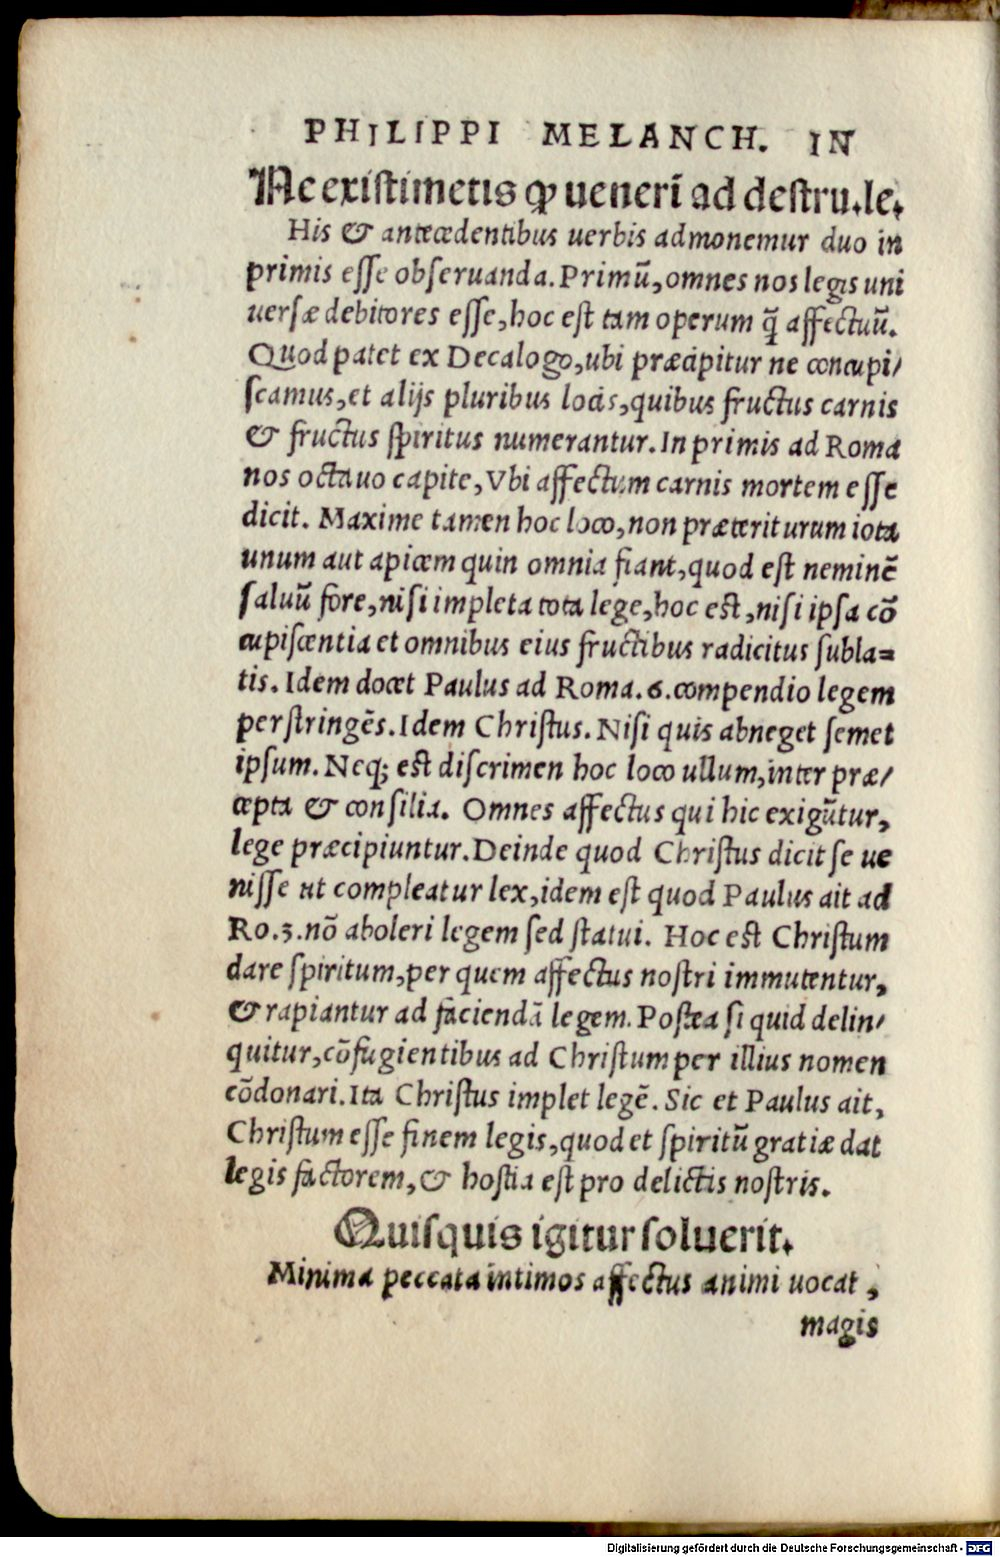 PHILIPPI MELANCH. IN
Ne existimetis ꝙ uenerī ad destru.le.
His & antecedentibus uerbis admonemur duo in
primis esse obseruanda. Primū, omnes nos legis uni
uersæ debitores esse, hoc est tam operum q̃ affectuū.
Quod patet ex Decalogo, ubi præcipitur ne concupi/
scamus, et alijs pluribus locis, quibus fructus carnis
& fructus spiritus numerantur. In primis ad Roma
nos octauo capite, Vbi affectum carnis mortem esse
dicit. Maxime tamen hoc loco, non præteriturum iota
unum aut apicem quin omnia fiant, quod est neminē
saluū fore, nisi impleta tota lege, hoc est, nisi ipsa cō
cupiscentia et omnibus eius fructibus radicitus subla=
tis. Idem docet Paulus ad Roma. 6. compendio legem
perstringēs. Idem Christus. Nisi quis abneget semet
ipsum. Neq; est discrimen hoc loco ullum, inter præ/
cepta & consilia. Omnes affectus qui hic exigūtur,
lege præcipiuntur. Deinde quod Christus dicit se ue
nisse ut compleatur lex, idem est quod Paulus ait ad
Ro. 3. nō aboleri legem sed statui. Hoc est Christum
dare spiritum, per quem affectus nostri immutentur,
& rapiantur ad faciendā legem. Postea si quid delin/
quitur, cōfugientibus ad Christum per illius nomen
cōdonari. Ita Christus implet legē. Sic et Paulus ait,
Christum esse finem legis, quod et spiritū gratiæ dat
legis factorem, & hostia est pro delictis nostris.
Quisquis igitur soluerit.
Minima peccata intimos affectus animi uocat,
magis
Digitalisierung gefördert durch die Deutsche Forschungsgemeinschaft - DFG